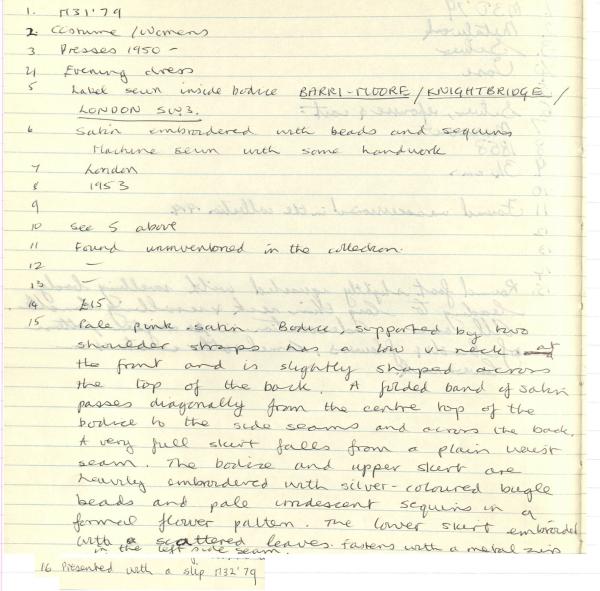 1. M31'79
2. Costume/Womens
3 Dresses 1950 -
4 Evening dress
5 Label sewn inside bodice BARRI-MOORE/KNIGHTBRIDGE/
LONDON SW3.
6 Satin embroidered with beads and sequins
Machine sewn with some handwork
7 London
8 1953
9
10 See 5 above
11 Found uninventoried in the collection.
12 -
13 -
14 £15
15 Pale pink satin Bodice, supported by two
shoulder straps has a low v neck at
the front and is slightly shaped across
the top of the back. A folded band of satin
passes diagonally from the centre top of the
bodice to the side seams and across the back.
A very full skirt falls from a plain waist
seam. The bodice and upper skirt are
heavily embroidered with silver-coloured bugle
beads and pale irridescent sequins in a
formal flower pattern. The lower skirt embroided
with a scattered leaves. Fastens with a metal zip
in the left side seam.
16 Presented with a slip M32'79